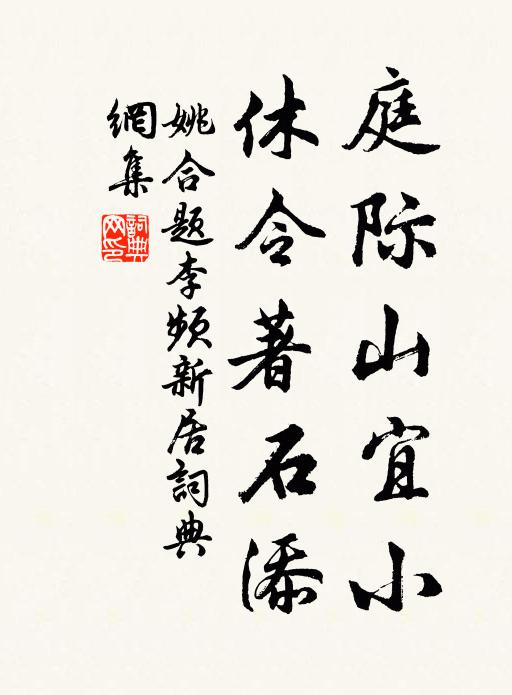 庭际山宜小
休令著石添
姚合题李频新居詞典
網集
詞典
网印